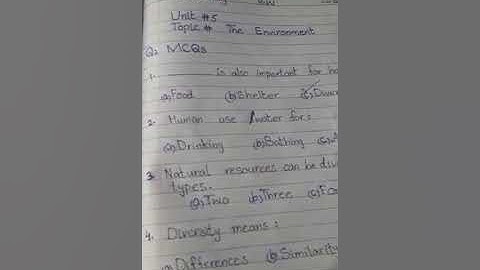 Unit #5
Topic # The Environment
Q2 MCQs
1. is also important for
(a) Food (b) Shelter (c)
2. Human use water for:
(a) Drinking (b) Bathing (c)
3. Natural resources can be
types.
(a) Two (b) Three (c)
4. Diversity means:
(a) Differences (b) Similarity